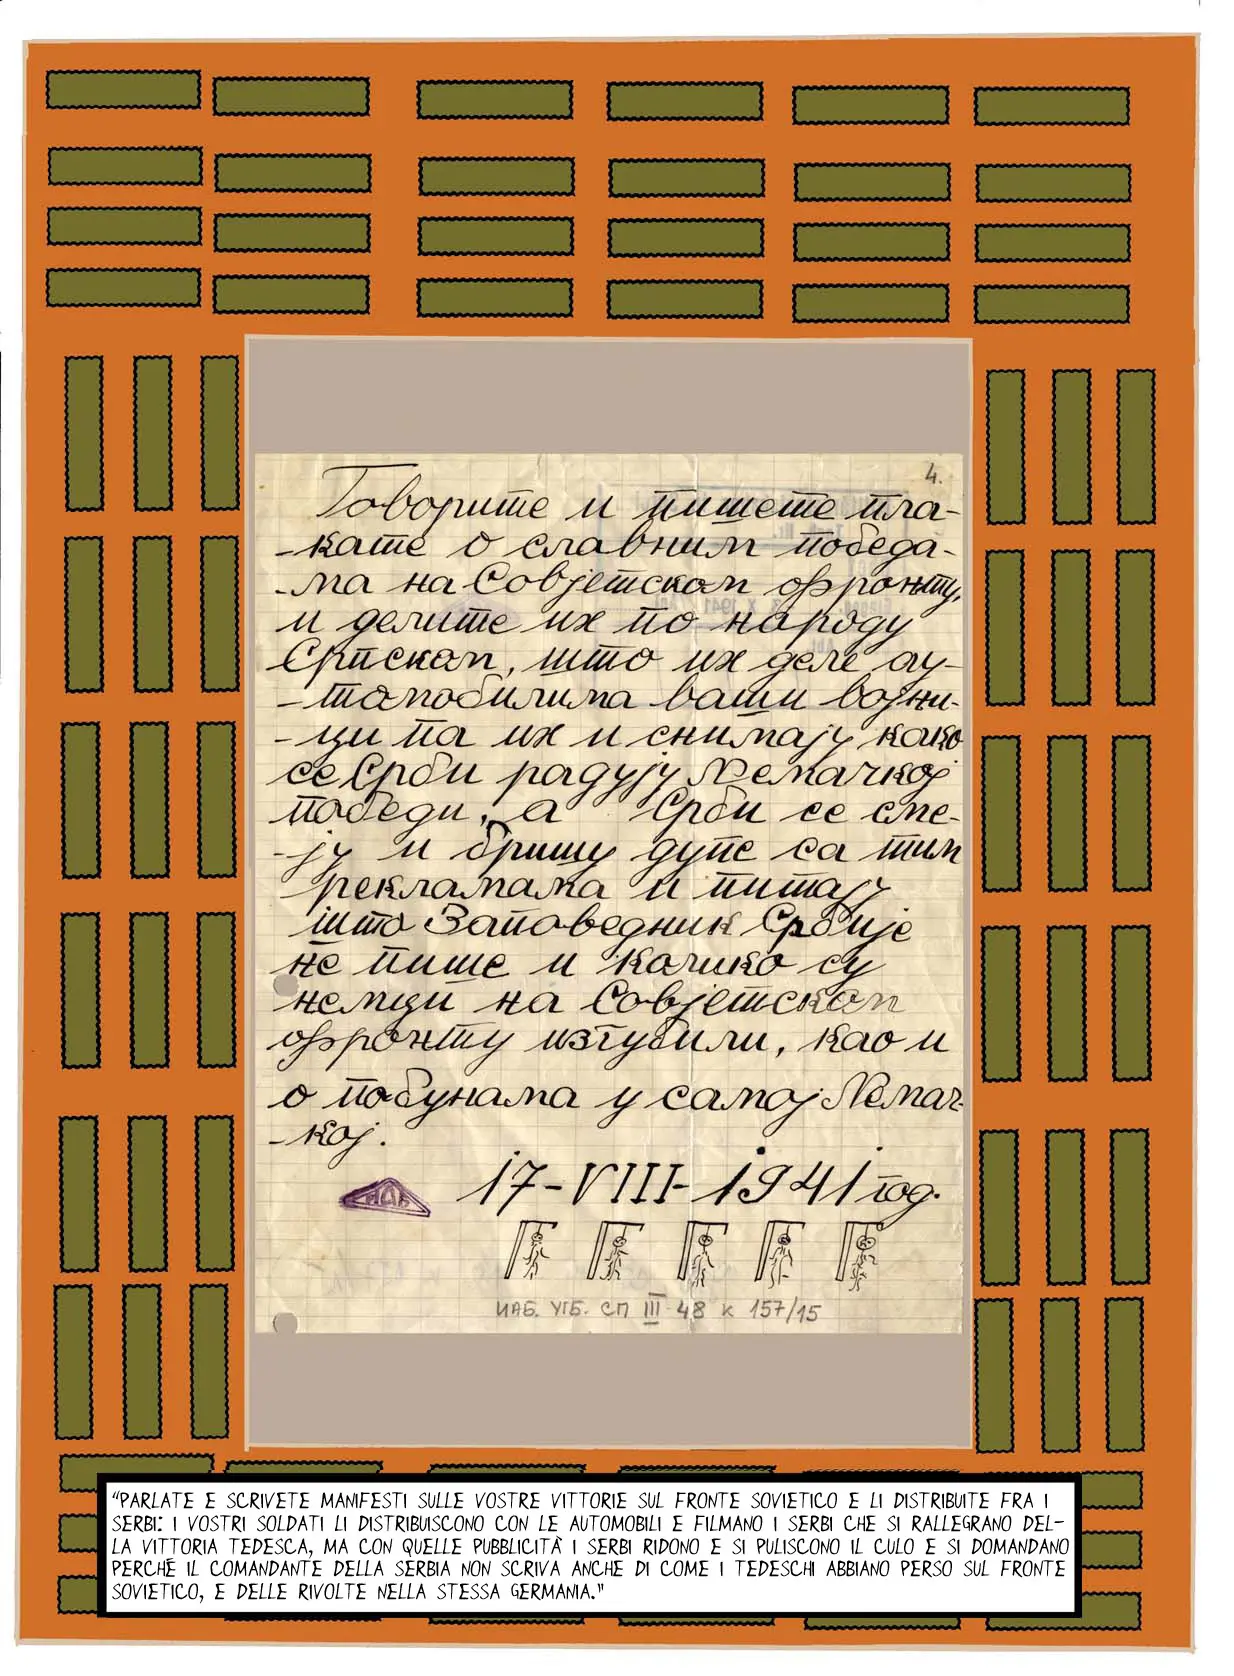 4.
Говорите и пишете пла-
-кате о славним победа-
-ма на Совјетском фронту,
и делите их по народу
Српском, што их деле ау-
-томобилима ваши војни-
-ци па их и снимају како
се Срби радују Немачкој
победи, а Срби се сме-
-ју и бришу дупе са тим
рекламама и питају
што Заповедник Србије
не пише и колико су
немци на Совјетском
фронту изгубили, као и
о побунама у самој Немач-
-кој.
17-VIII-1941 год.
ИАБ
ИАБ. УГБ. СП III-48 к 157/15
"PARLATE E SCRIVETE MANIFESTI SULLE VOSTRE VITTORIE SUL FRONTE SOVIETICO E LI DISTRIBUITE FRA I
SERBI: I VOSTRI SOLDATI LI DISTRIBUISCONO CON LE AUTOMOBILI E FILMANO I SERBI CHE SI RALLEGRANO DEL-
LA VITTORIA TEDESCA, MA CON QUELLE PUBBLICITÀ I SERBI RIDONO E SI PULISCONO IL CULO E SI DOMANDANO
PERCHÉ IL COMANDANTE DELLA SERBIA NON SCRIVA ANCHE DI COME I TEDESCHI ABBIANO PERSO SUL FRONTE
SOVIETICO, E DELLE RIVOLTE NELLA STESSA GERMANIA."